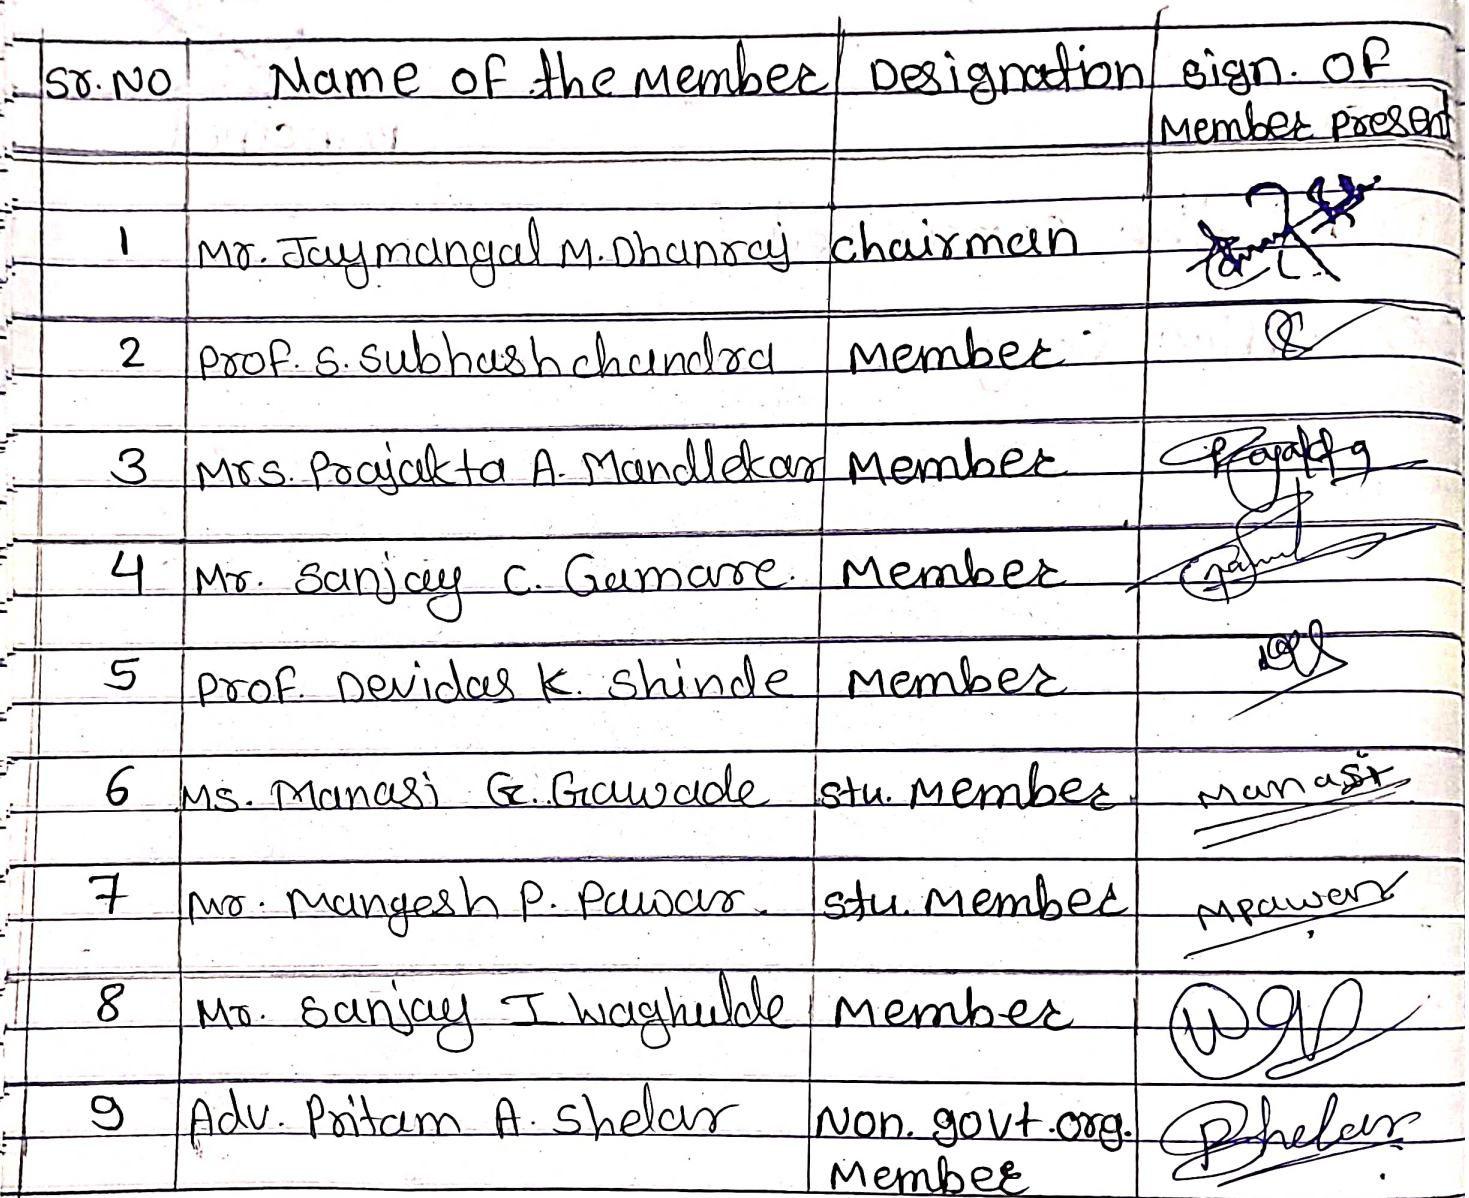 Sr. No Name of the Member Designation sign. OF
Member Present
1 Mr. Jaymangal M. Dhanraj Chairman
2 Prof. S. Subhashchandra Member
3 Mrs. Prajakta A. Mandlekar Member Prajakta
4 Mr. Sanjay C. Gamare. Member
5 Prof. Devidas K. Shinde Member
6 Ms. Manasi G. Gawade Stu. Member Manasi
7 Mr. Mangesh P. Pawar. Stu. Member MPawar
8 Mr. Sanjay J Waghulde Member
9 Adv. Pritam A. Shelar Non. govt. org. Pshelar
Member